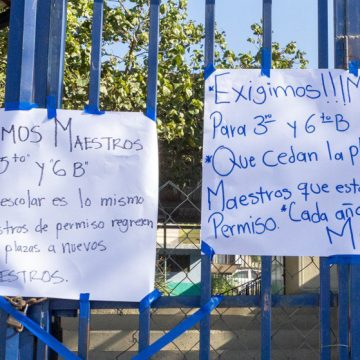 MOS MAESTROS
5to y "6 B"
escolar es lo mismo
tros de permiso regresen
plazas a nuevos
ESTROS.
*Exigimos!!! M
Para 3ro y 6to B
*Que cedan la pl
Maestros que est
Permiso. *Cada año
M